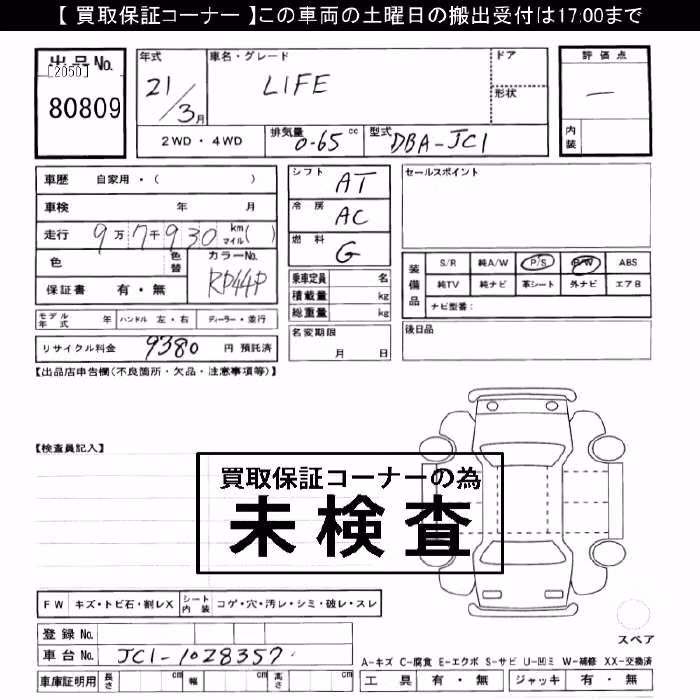 【 買取保証コーナー 】この車両の土曜日の搬出受付は17:00まで
出品No.
[2050]
80809
年式
21/3月
車名・グレード
LIFE
ドア
形状
評価点
―
内装
2WD・4WD
排気量 0.65 cc
型式 DBA-JC1
車歴 自家用・( )
車検 年 月
走行 9万7千930 kmマイル( )
色 色替
カラーNo. RP44P
保証書 有・無
シフト AT
冷房 AC
燃料 G
乗車定員 名
積載量 kg
総重量 kg
セールスポイント
装備品
S/R 純A/W P/S P/W ABS
純TV 純ナビ 革シート 外ナビ エアB
ナビ型番:
モデル年式 年 ハンドル 左・右 ディーラー・並行
名変期限 月 日
後日品
リサイクル料金 9380 円 預託済
【出品店申告欄(不良箇所・欠品・注意事項等)】
【検査員記入】
買取保証コーナーの為
未検査
FW キズ・トビ石・割レX シート内装 コゲ・穴・汚レ・シミ・破レ・スレ
登録No.
車台No. JC1-1028357
車庫証明用 長さ cm 幅 cm 高さ cm
スペア
A-キズ C-腐食 E-エクボ S-サビ U-凹ミ W-補修 XX-交換済
工具 有・無 ジャッキ 有・無